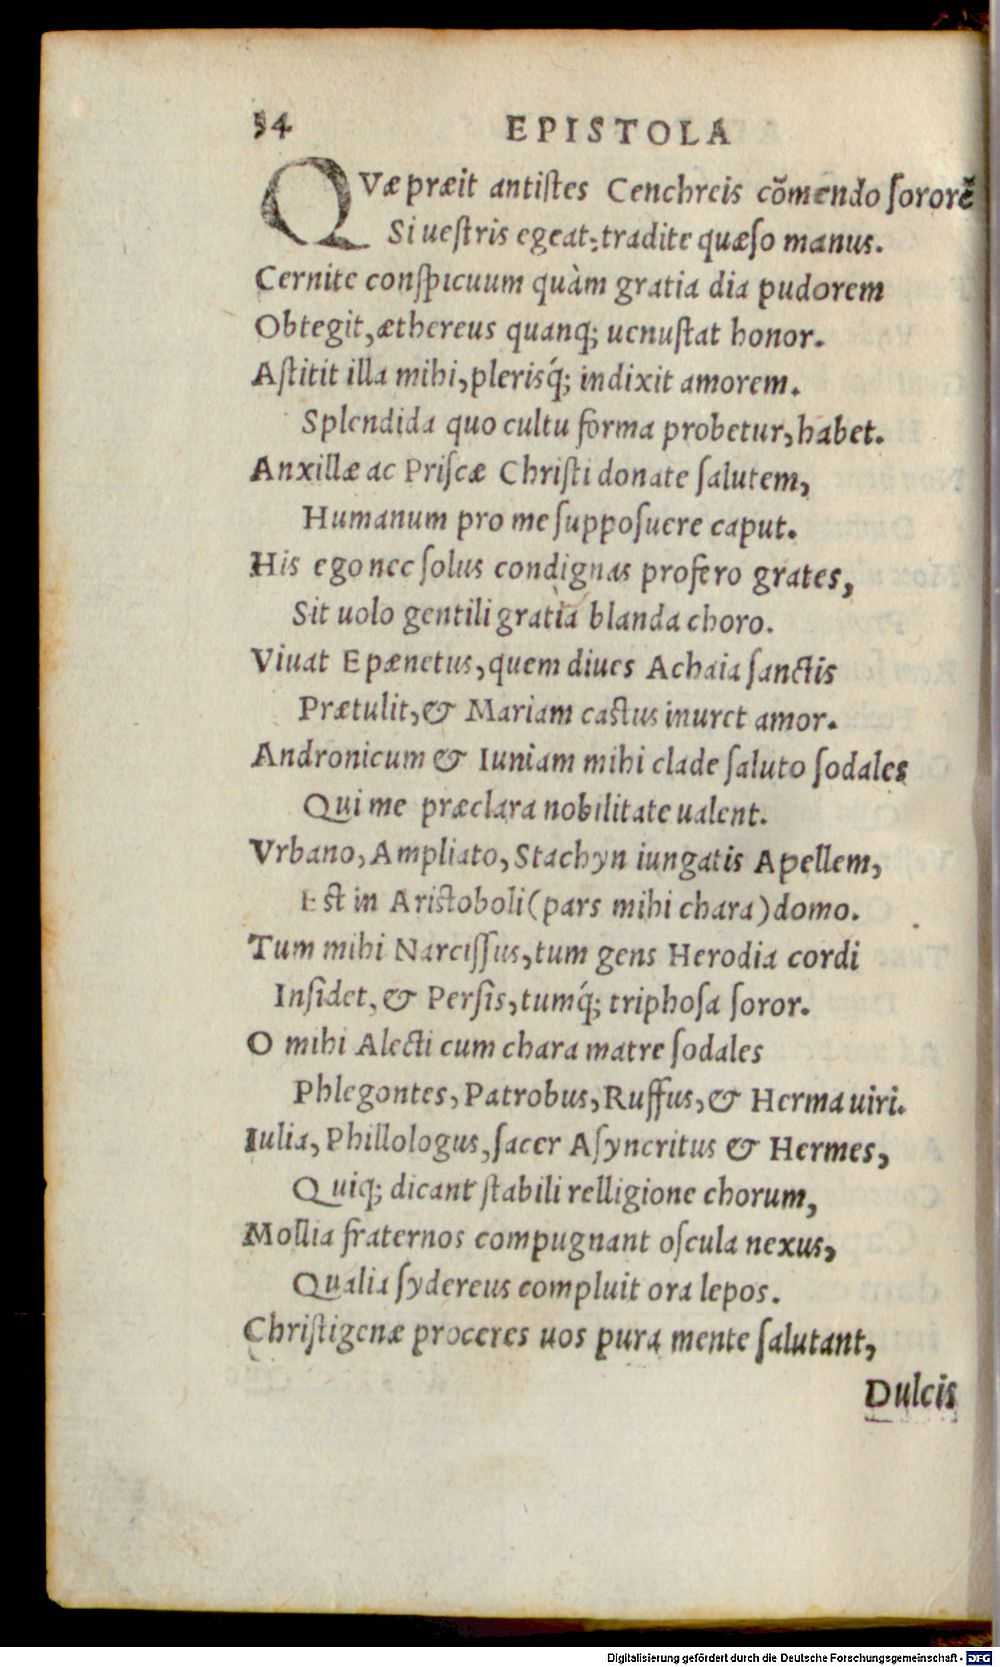 94 EPISTOLA
QVæ præit antistes Cenchreis cõmendo sororẽ
Si uestris egeat: tradite quæso manus.
Cernite conspicuum quàm gratia dia pudorem
Obtegit, æthereus quanq; uenustat honor.
Astitit illa mihi, plerisq́; indixit amorem.
Splendida quo cultu forma probetur, habet.
Anxillæ ac Priscæ Christi donate salutem,
Humanum pro me supposuere caput.
His ego nec solus condignas profero grates,
Sit uolo gentili gratia blanda choro.
Viuat Epænetus, quem diues Achaia sanctis
Prætulit, & Mariam castus inuret amor.
Andronicum & Iuniam mihi clade saluto sodales
Qui me præclara nobilitate ualent.
Vrbano, Ampliato, Stachyn iungatis Apellem,
Est in Aristoboli (pars mihi chara) domo.
Tum mihi Narcissus, tum gens Herodia cordi
Insidet, & Persis, tumq́; triphosa soror.
O mihi Alecti cum chara matre sodales
Phlegontes, Patrobus, Ruffus, & Herma uiri.
Iulia, Phillologus, sacer Asyncritus & Hermes,
Quiq; dicant stabili relligione chorum,
Mollia fraternos compugnant oscula nexus,
Qualia sydereus compluit ora lepos.
Christigenæ proceres uos pura mente salutant,
Dulcis
Digitalisierung gefördert durch die Deutsche Forschungsgemeinschaft - DFG